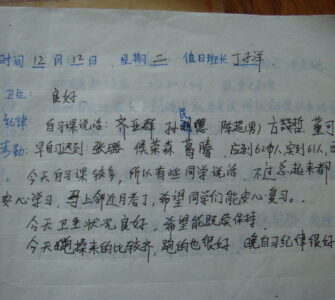 时间 12 月 12 日 星期 二 值日班长 丁子洋
卫生: 良好
纪律 自习课说话: 齐亚群 孙 民德 陈超男) 方喆哲 董可
考勤: 早自习迟到: 张璐 侯荣森 葛 应到62人 实到61人,
今天自习课较多, 所以有些同学说话, 不过总起来都
安心学习, 马上邻近月考了, 希望同学们能安心复习。
今天卫生状况良好, 希望能既续保持
今天跑操来的比较齐, 跑的也很好 晚自习纪律很好